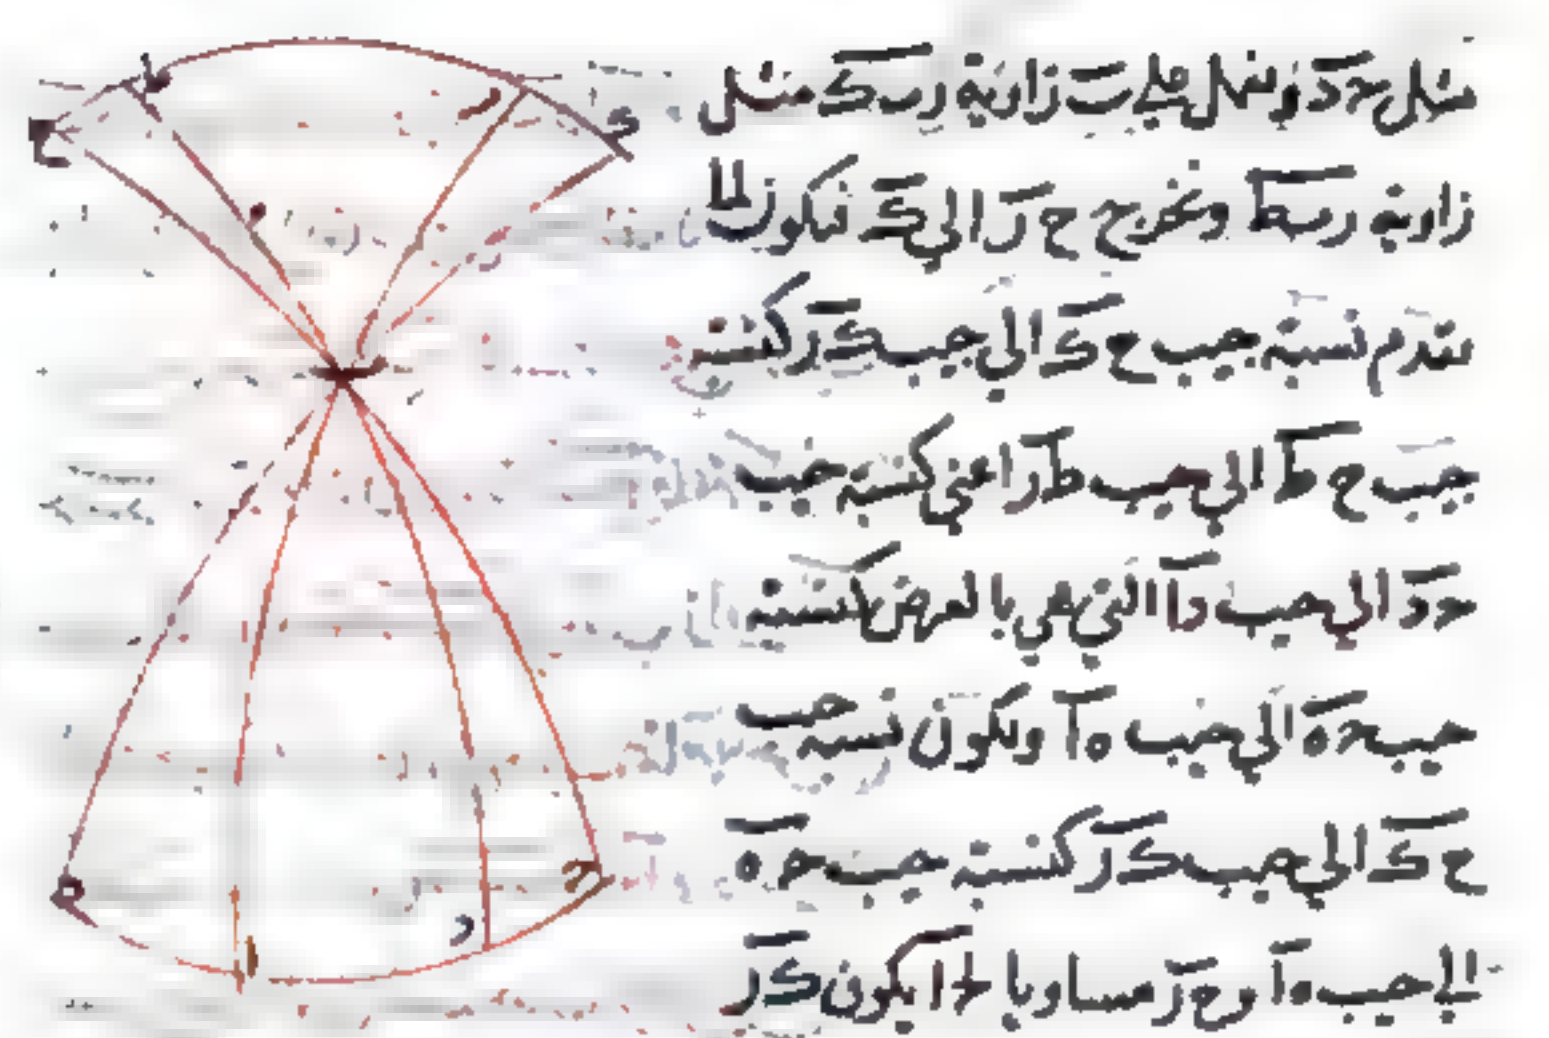 مثل حـ د ونعمل على ب زاوية ر ب ك مثل
زاوية ر ب ط ونخرج ح ر الى ك فيكون لما
تقدم نسبة جيب ح ك الى جيب ك ر كنسبة
جيب ح ط الى جيب ط ر اعني كنسبة جيب
حـ د الى جيب د ا التي هي بالعرض كنسبة
جيب حـ ه الى جيب ه ا ويكون نسبة جيب
ح ك الى جيب ك ر كنسبة جيب حـ ه
الى جيب ه ا و ح ر مساويا لـ حـ ا يكون ك ر